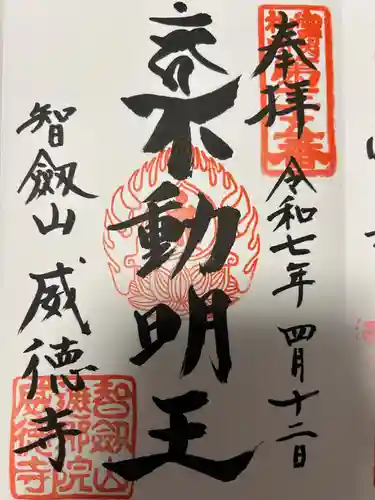 奉拝
令和七年四月十二日
不動明王
智劒山
威徳寺
智劒山
遮那院
威徳寺